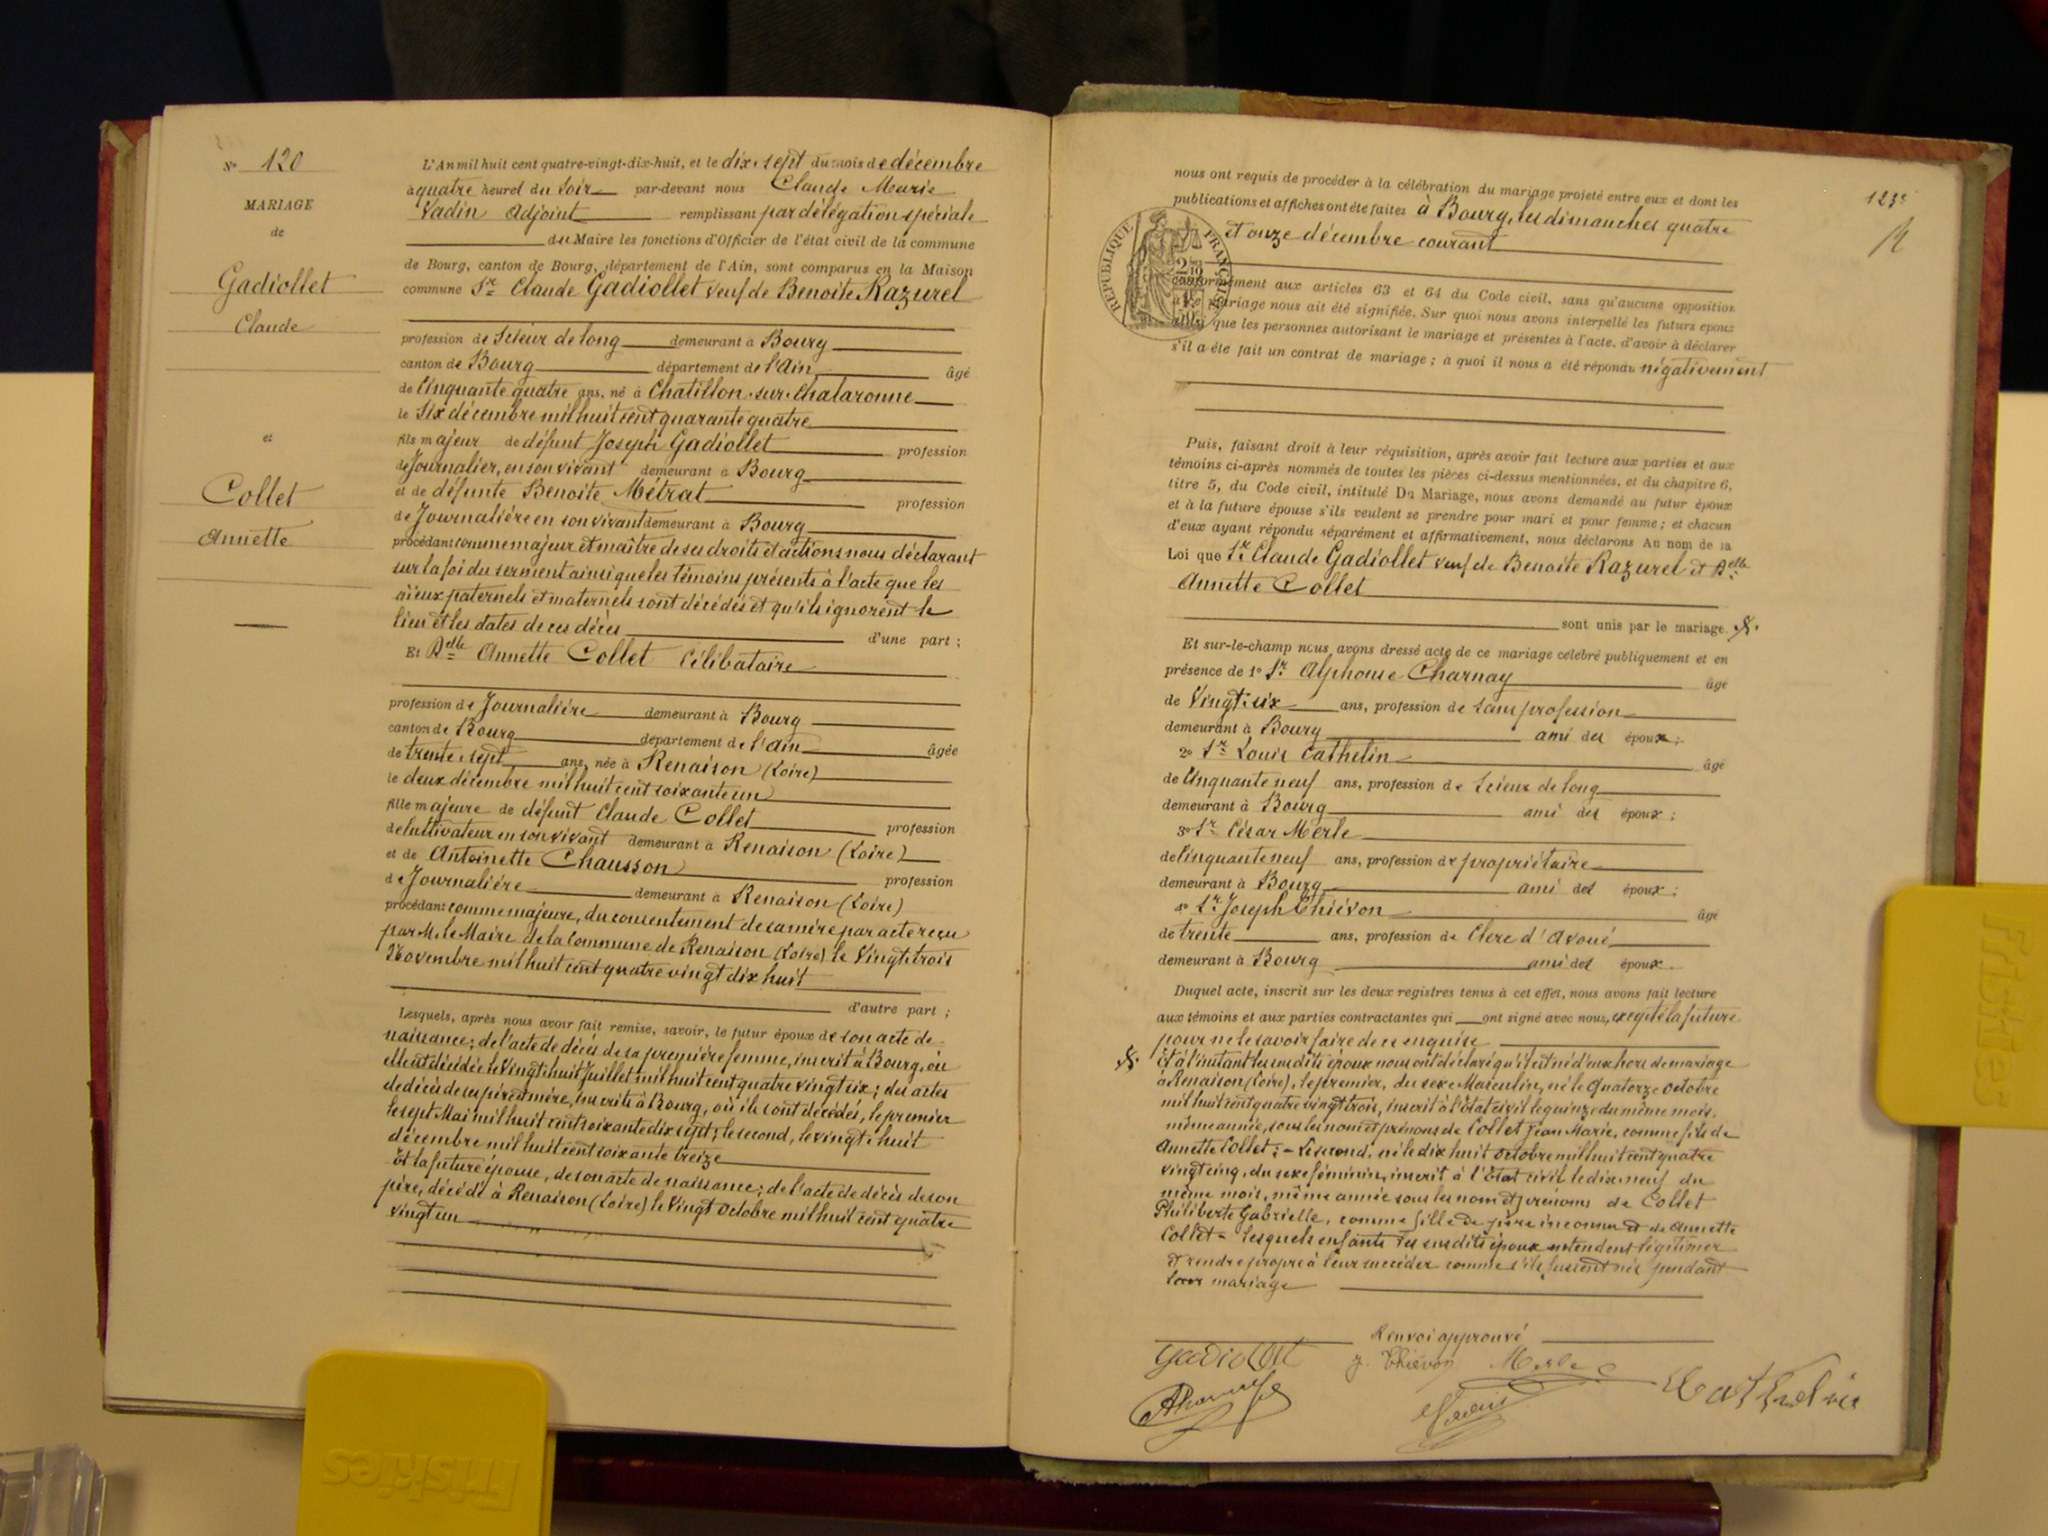 N° 120
MARIAGE
de
Gadiollet
Claude
et
Collet
Annette
L'An mil huit cent quatre-vingt-dix-huit, et le dix-sept du mois de décembre
à quatre heures du soir par-devant nous Claude Marie
Vadin Adjoint remplissant par délégation spéciale
du Maire les fonctions d'Officier de l'état civil de la commune
de Bourg, canton de Bourg, département de l'Ain, sont comparus en la Maison
commune Sr Claude Gadiollet veuf de Benoite Razurel
profession de Scieur de long demeurant à Bourg
canton de Bourg département de l'Ain âgé
de Cinquante quatre ans, né à Chatillon-sur-Chalaronne
le Six décembre mil huit cent quarante quatre
fils majeur de défunt Joseph Gadiollet profession
de Journalier, en son vivant demeurant à Bourg
et de défunte Benoite Métrat profession
de Journalière en son vivant demeurant à Bourg
procédant comme majeur et maître de ses droits et actions nous déclarant
sur la foi du serment ainsi que les témoins présents à l'acte que les
aïeux paternels et maternels sont décédés et qu'ils ignorent le
lieu et les dates de ces décès d'une part ;
Et Delle Annette Collet Célibataire
profession de Journalière demeurant à Bourg
canton de Bourg département de l'Ain âgée
de trente-sept ans, née à Renaison (Loire)
le deux décembre mil huit cent soixante un
fille majeure de défunt Claude Collet profession
de Cultivateur en son vivant demeurant à Renaison (Loire)
et de Antoinette Chausson profession
de Journalière demeurant à Renaison (Loire)
procédant comme majeure, du consentement de sa mère par acte reçu
par M. le Maire de la Commune de Renaison (Loire) le Vingt-trois
Novembre mil huit cent quatre vingt dix huit
d'autre part ;
Lesquels, après nous avoir fait remise, savoir, le futur époux de son acte de
naissance ; de l'acte de décès de sa première femme, inscrit à Bourg, où
elle est décédée le Vingt-huit Juillet mil huit cent quatre vingt six ; des actes
de décès de ses père et mère, inscrits à Bourg, où ils sont décédés, le premier
le sept Mai mil huit cent soixante dix sept ; le second, le vingt-huit
décembre mil huit cent soixante treize
Et la future épouse, de son acte de naissance ; de l'acte de décès de son
père, décédé à Renaison (Loire) le Vingt Octobre mil huit cent quatre
vingt un
123e
nous ont requis de procéder à la célébration du mariage projeté entre eux et dont les
publications et affiches ont été faites à Bourg, les dimanches quatre
et onze décembre courant
REPUBLIQUE FRANÇAISE
conformément aux articles 63 et 64 du Code civil, sans qu'aucune opposition
à ce mariage nous ait été signifiée. Sur quoi nous avons interpellé les futurs époux
ainsi que les personnes autorisant le mariage et présentes à l'acte, d'avoir à déclarer
s'il a été fait un contrat de mariage ; à quoi il nous a été répondu négativement
Puis, faisant droit à leur réquisition, après avoir fait lecture aux parties et aux
témoins ci-après nommés de toutes les pièces ci-dessus mentionnées, et du chapitre 6,
titre 5, du Code civil, intitulé Du Mariage, nous avons demandé au futur époux
et à la future épouse s'ils veulent se prendre pour mari et pour femme ; et chacun
d'eux ayant répondu séparément et affirmativement, nous déclarons Au nom de la
Loi que Sr Claude Gadiollet veuf de Benoite Razurel et Delle
Annette Collet
sont unis par le mariage.
Et sur-le-champ nous avons dressé acte de ce mariage célébré publiquement et en
présence de 1° Sr Alphonse Charnay âgé
de Vingt-six ans, profession de sans profession
demeurant à Bourg ami des époux ;
2° Sr Louis Cathelin âgé
de Cinquante neuf ans, profession de Scieur de long
demeurant à Bourg ami des époux ;
3° Sr César Merle
de Cinquante neuf ans, profession de propriétaire
demeurant à Bourg ami des époux ;
4° Sr Joseph Thiévon âgé
de trente ans, profession de Clerc d'Avoué
demeurant à Bourg ami des époux.
Duquel acte, inscrit sur les deux registres tenus à cet effet, nous avons fait lecture
aux témoins et aux parties contractantes qui ont signé avec nous, excepté la future
pour ne le savoir faire de ce enquise
Et à l'instant les susdits époux nous ont déclaré qu'il est né d'eux hors de mariage
à Renaison (Loire), le premier, du sexe Masculin, né le Quatorze Octobre
mil huit cent quatre vingt trois, inscrit à l'Etat civil le quinze du même mois,
même année, sous les nom et prénoms de Collet Jean Marie, comme fils de
Annette Collet ; - Le second, né le dix huit Octobre mil huit cent quatre
vingt cinq, du sexe féminin, inscrit à l'Etat civil le dix neuf du
même mois, même année sous les nom et prénoms de Collet
Philiberte Gabrielle, comme fille de père inconnu et de Annette
Collet - lesquels enfants les susdits époux entendent légitimer
et rendre propre à leur succéder comme s'ils fussent nés pendant
leur mariage
Renvoi approuvé
Gadiollet J. Thiévon Merle
Cathelin
Charnay Vadin
Friskies
Friskies